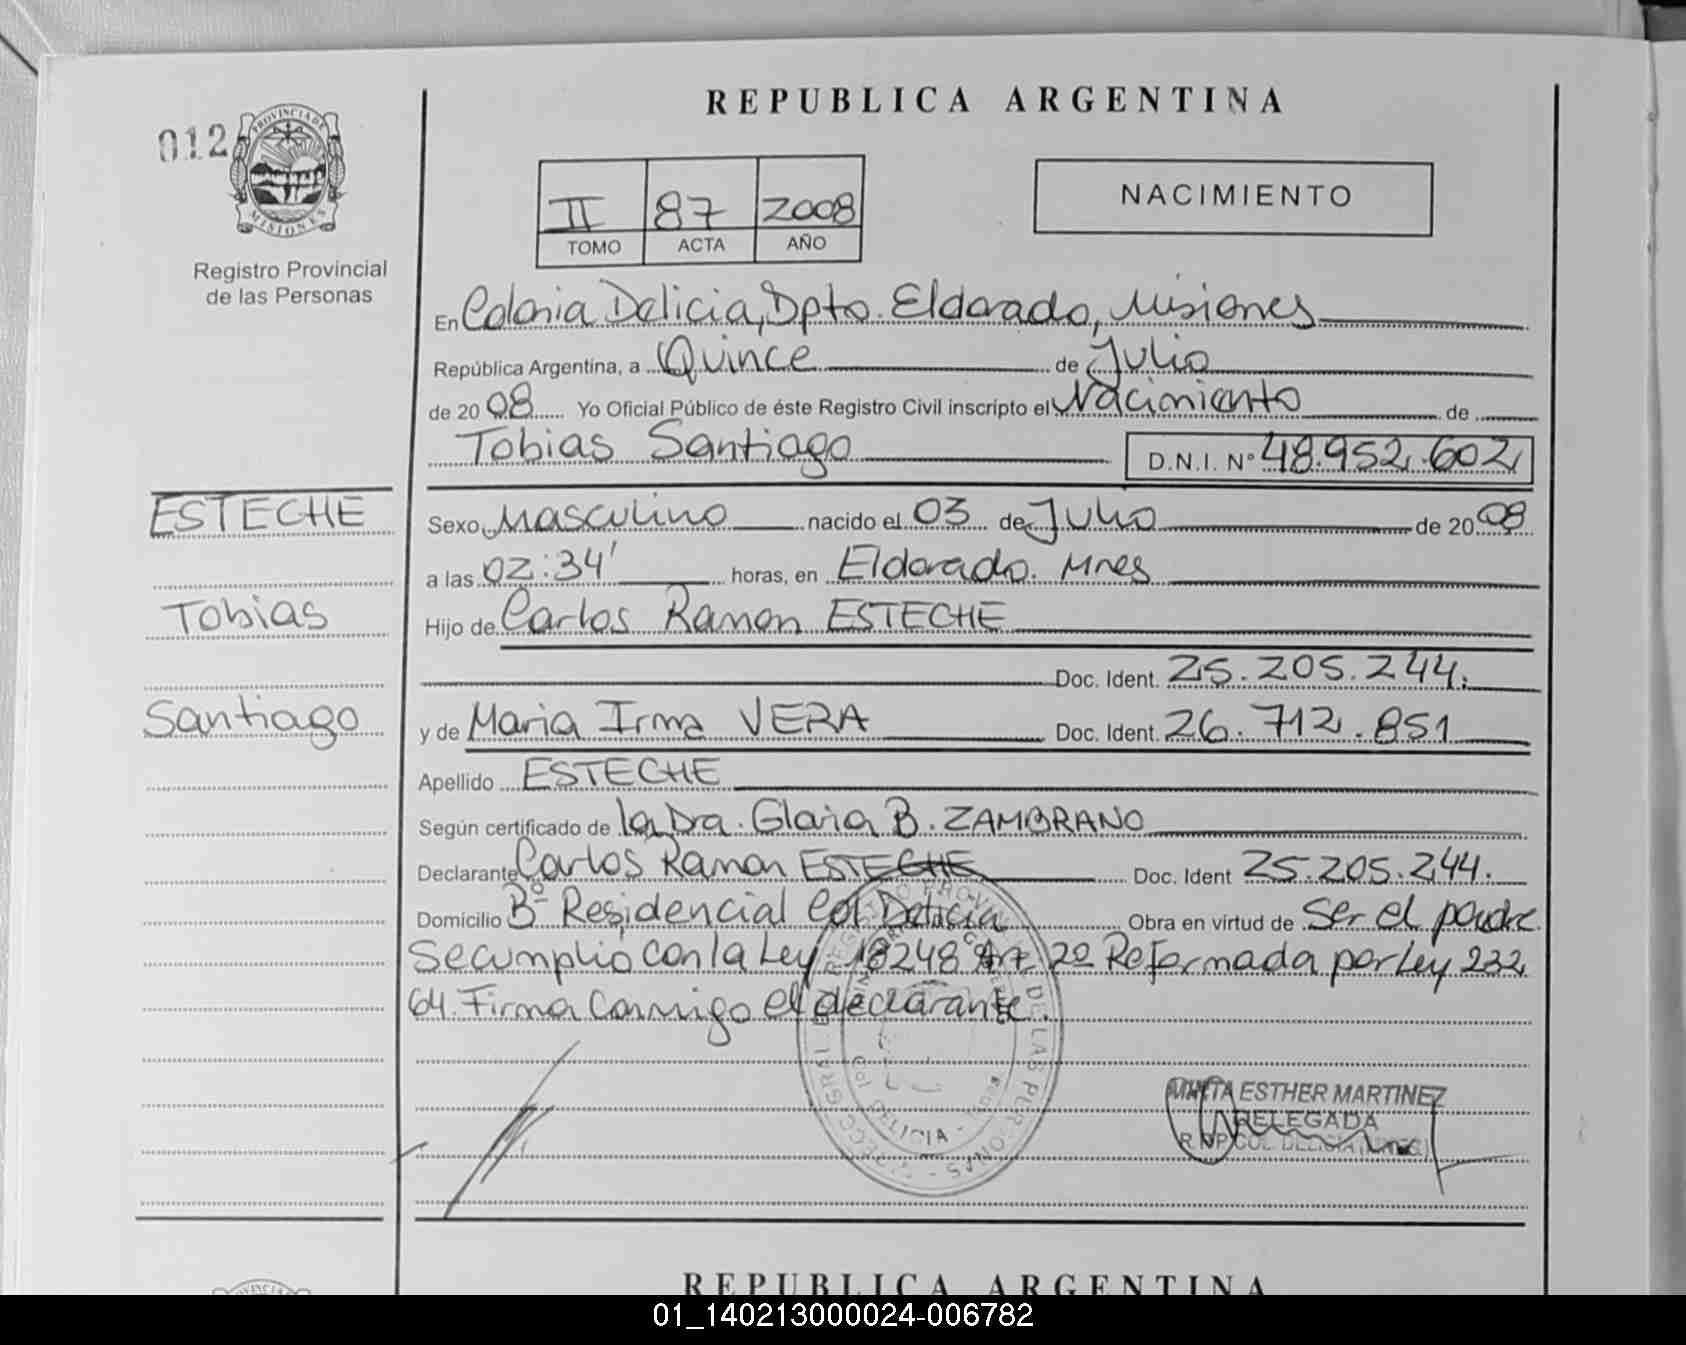 REPUBLICA ARGENTINA
012
PROVINCIA DE MISIONES
Registro Provincial
de las Personas
II 87 2008
TOMO ACTA AÑO
NACIMIENTO
En Colonia Delicia, Dpto. Eldorado, Misiones
República Argentina, a Quince de Julio
de 2008 Yo Oficial Público de éste Registro Civil inscripto el Nacimiento de
Tobias Santiago D.N.I. Nº 48.952.602
ESTECHE
Tobias
Santiago
Sexo Masculino nacido el 03 de Julio de 2008
a las 02:34' horas, en Eldorado. Mnes
Hijo de Carlos Ramon ESTECHE
Doc. Ident. 25.205.244.
y de Maria Irma VERA Doc. Ident. 26.712.851
Apellido ESTECHE
Según certificado de la Dra. Gloria B. ZAMBRANO
Declarante Carlos Ramon ESTECHE Doc. Ident 25.205.244.
Domicilio Bº Residencial Col. Delicia Obra en virtud de Ser el padre
Se cumplio con la Ley 18248 Art 2º Reformada por Ley 232
64. Firma Conmigo el declarante.
DE LAS PERSONAS
DELICIA
ESTHER MARTINEZ
DELEGADA
COL DELICIA
REPUBLICA ARGENTINA
01_140213000024-006782